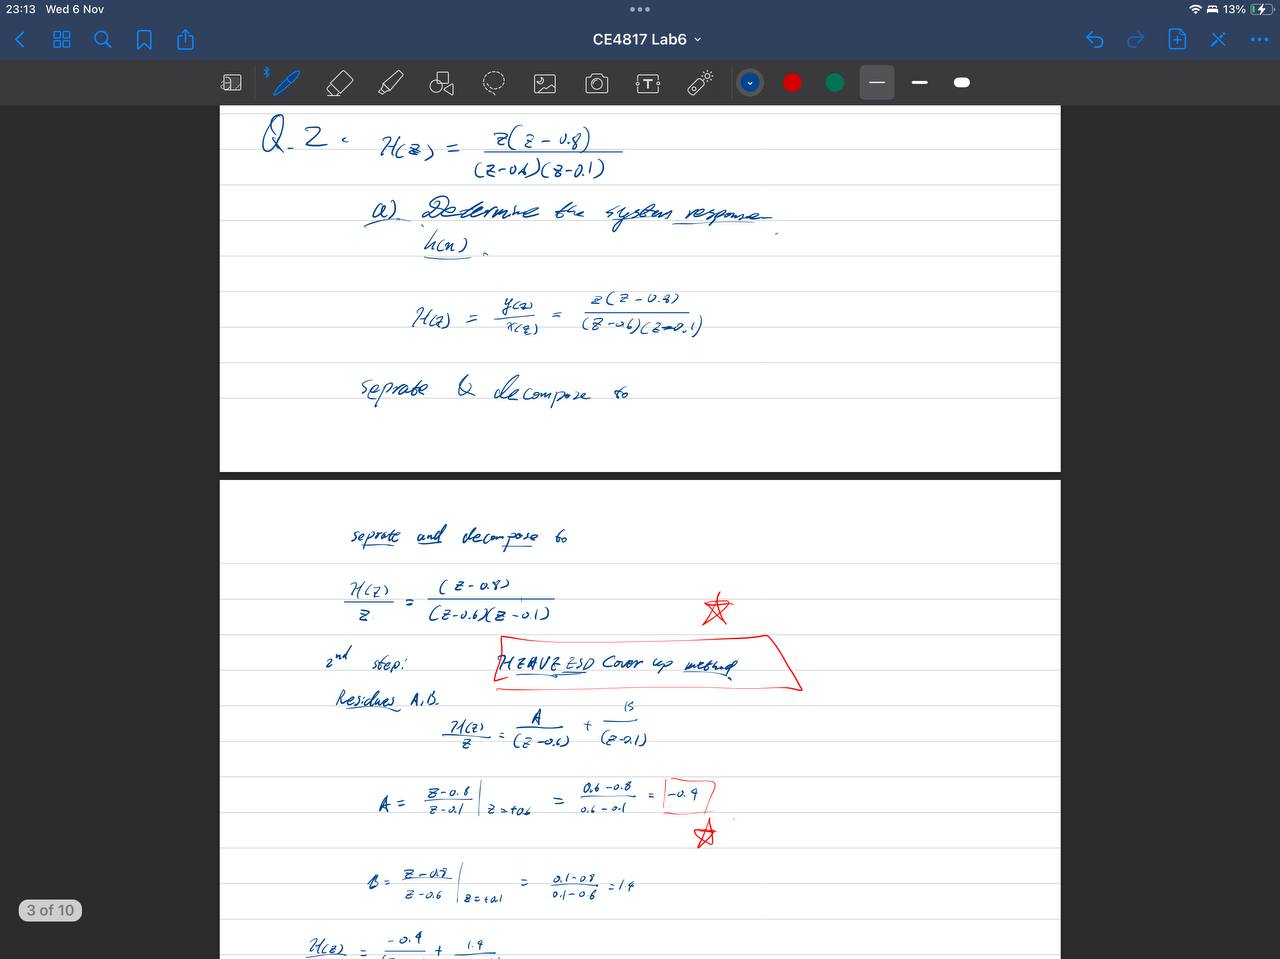 23:13 Wed 6 Nov
13%
CE4817 Lab6
T
Q.2. H(z) = z(z-0.8) / (z-0.6)(z-0.1)
a). Determine the system response
h(n).
H(z) = y(z) / x(z) = z(z-0.8) / (z-0.6)(z-0.1)
seprate & decompose to
seprate and decompose to
H(z) / z = (z-0.8) / (z-0.6)(z-0.1)
2nd step: HEAVEESD Cover up method.
Residues A,B.
H(z) / z = A / (z-0.6) + B / (z-0.1)
A = z-0.8 / z-0.1 | z=+0.6 = 0.6-0.8 / 0.6-0.1 = -0.4
B = z-0.8 / z-0.6 | z=+0.1 = 0.1-0.8 / 0.1-0.6 = 1.4
3 of 10
H(z) = -0.4 + 1.4